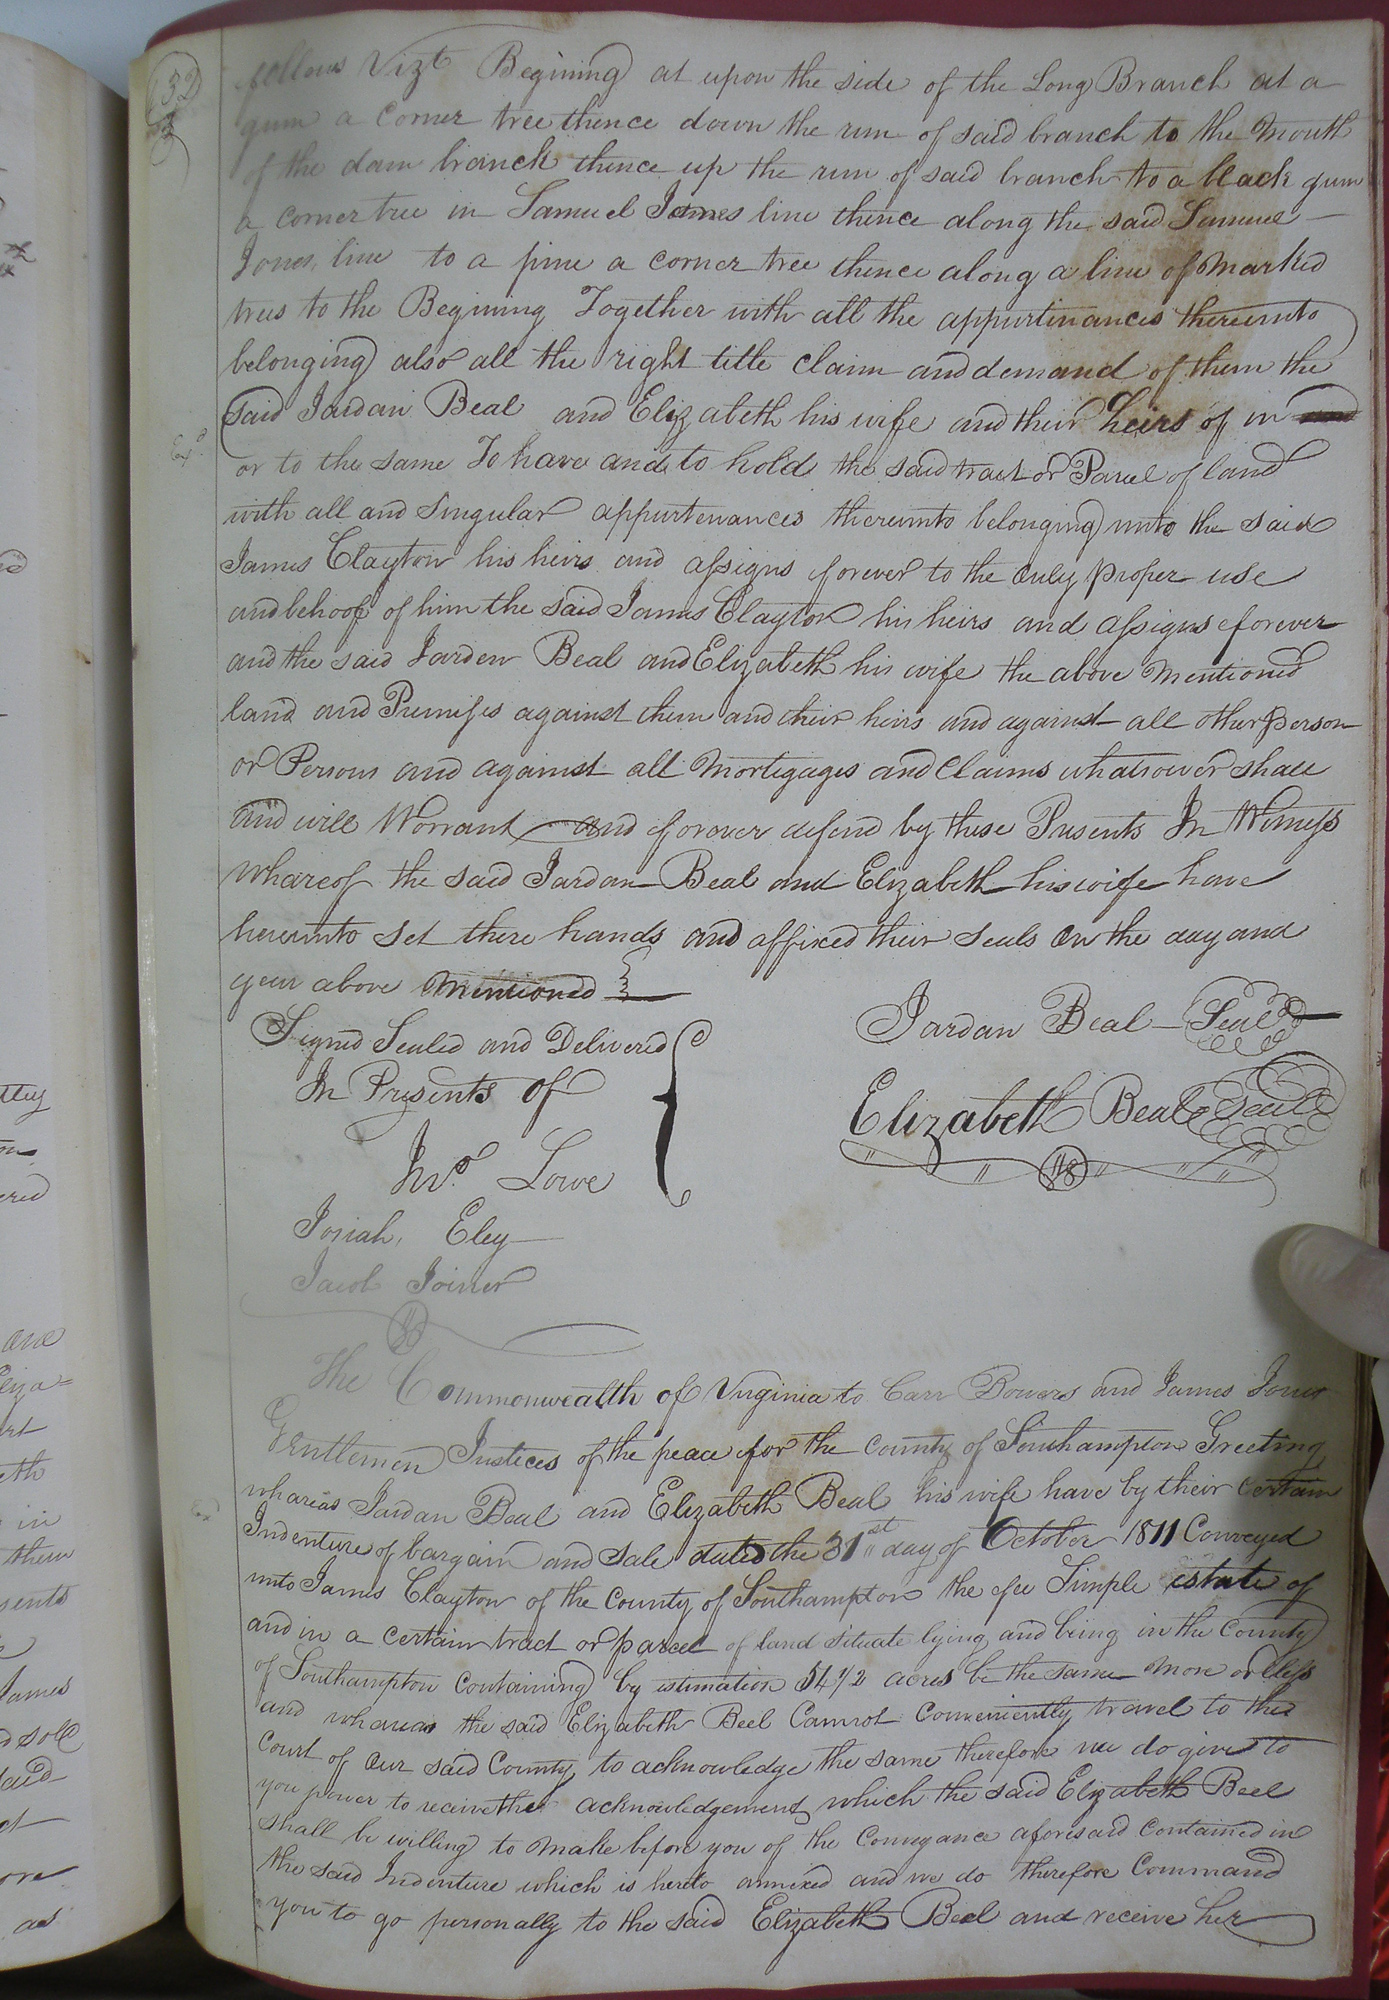 32
follows Vizt Begining at upon the side of the Long Branch at a
gum a Corner tree thence down the run of said branch to the Mouth
of the dam branch thence up the run of said branch to a black gum
a corner tree in Samuel Jones line thence along the said Samuel
Jones, line to a pine a corner tree thence along a line of Marked
trees to the Begining Together with all the appurtinances thereunto
belonging also all the right title claim and demand of them the
said Jardan Beal and Elizabeth his wife and their heirs of in
or to the same To have and to hold the said tract or Parcel of land
with all and Singular appurtenances thereunto belonging unto the said
James Clayton his heirs and assigns forever to the only proper use
and behoof of him the said James Clayton his heirs and assigns forever
and the said Jarden Beal and Elizabeth his wife the above Mentioned
land and Premises against them and their heirs and against all other person
or Persons and against all Mortigages and Claims whatsoever shall
and will Worrant and forever defend by these Presents In Witness
whareof the said Jardan Beal and Elizabeth his wife have
hereunto set there hands and affixed their seals on the day and
year above Mentioned
Signed Sealed and Delivered
In Presents of
Jardan Beal Seal
Elizabeth Beal Seal
Jno. Lowe
Josiah, Eley
Jacob Joiner
The Commonwealth of Virginia to Carr Bowers and James Jones
Gentlemen Justices of the peace for the county of Southampton Greeting
whareas Jardan Beal and Elizabeth Beal his wife have by their certain
Indenture of bargain and sale dated the 31st day of October 1811 Conveyed
unto James Clayton of the County of Southampton the fee Simple estate of
and in a certain tract or parcel of land situate lying and being in the County
of Southampton Containing by estimation 54 1/2 acres be the same more or less
and whareas the said Elizabeth Beel Cannot Conveniently travel to the
Court of our said County to acknowledge the same therefore we do give to
you power to receive the acknowledgement which the said Elizabeth Beel
shall be willing to make before you of the Conveyance aforesaid contained in
the said Indenture which is hereto annexed and we do therefore Command
you to go personally to the said Elizabeth Beel and receive her